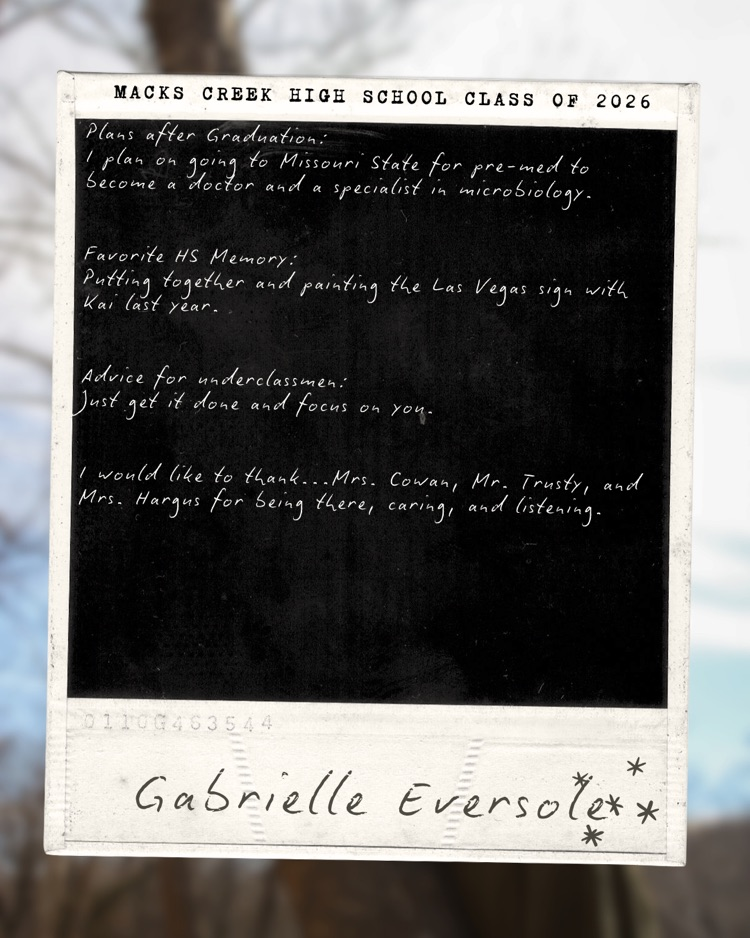 MACKS CREEK HIGH SCHOOL CLASS OF 2026
Plans after Graduation:
I plan on going to Missouri State for pre-med to
become a doctor and a specialist in microbiology.
Favorite HS Memory:
Putting together and painting the Las Vegas sign with
Kai last year.
Advice for underclassmen:
Just get it done and focus on you.
I would like to thank...Mrs. Cowan, Mr. Trusty, and
Mrs. Hargus for being there, caring, and listening.
0110G463544
Gabrielle Eversole